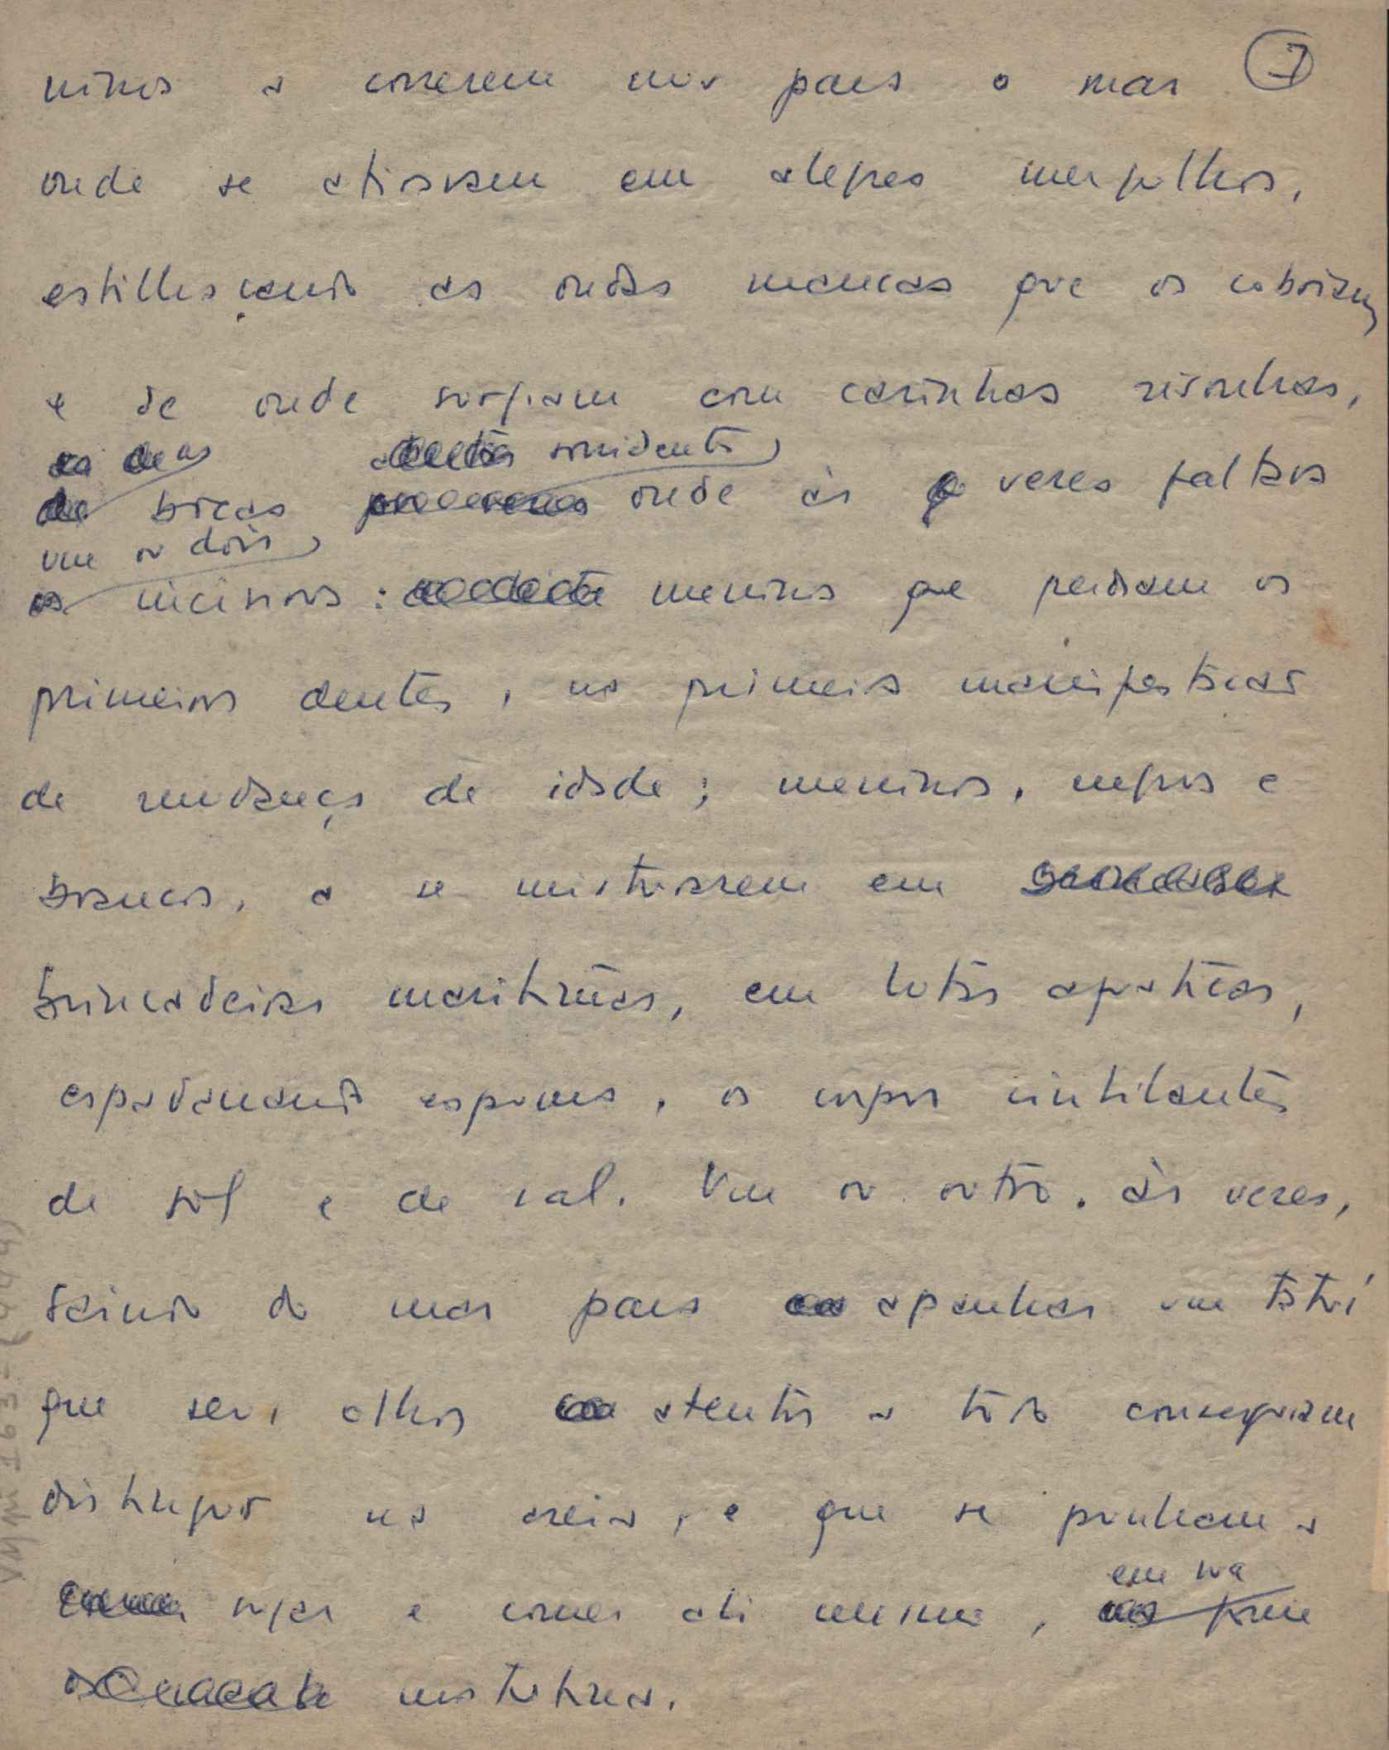 ninos a correrem nus para o mar 7
onde se atiravam em alegres mergulhos,
estilhaçando as ondas mansas que os cobriam
e de onde surgiam com carinhas risonhas,
as
sorridentes
bocas onde às vezes faltava
um ou dois
incisivos: meninos que perdiam os
primeiros dentes, na primeira manifestacao
de mudança de idade; meninos, negros e
brancos, a se misturarem em
brincadeiras maritimas, em lutas aquaticas,
espadanando espuma, os corpos cintilantes
de sol e de sal. Um ou outro, às vezes,
saindo do mar para apanhar um tatuí
que seus olhos atentos a tudo conseguiam
distinguir na areia, e que se punham a
em sua
sugar e comer ali mesmo,
VMM 163-(